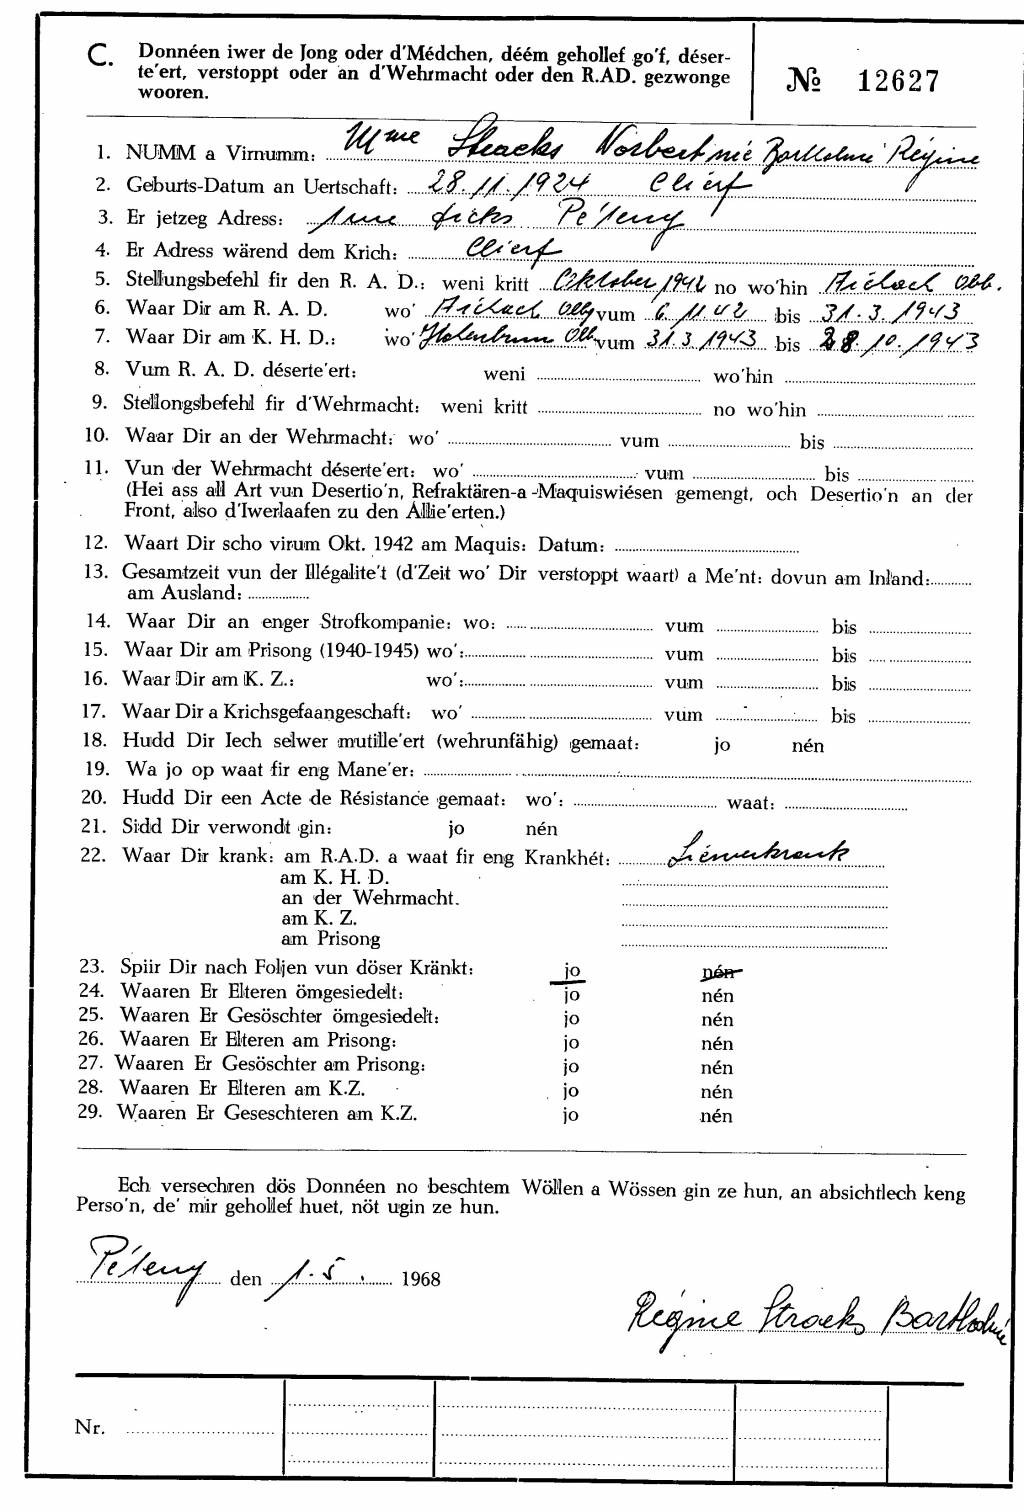 C. Donnéen iwer de Jong oder d'Médchen, déém gehollef go'f, déser-
te'ert, verstoppt oder an d'Wehrmacht oder den R.AD. gezwonge
wooren.
№ 12627
1. NUMM a Virnumm: Mme Stracks Norbert née Barthelmé Régine
2. Geburts-Datum an Uertschaft: 28.11.1924 Clierf
3. Er jetzeg Adress: Dicks Péteny
4. Er Adress wärend dem Krich: Clierf
5. Stellungsbefehl fir den R. A. D.: weni kritt Oktober 1942 no wo'hin Aichach Obb.
6. Waar Dir am R. A. D. wo' Aichach Obb vum 6.11.42 bis 31.3.1943
7. Waar Dir am K. H. D.: wo' Obb vum 31.3.1943 bis 28.10.1943
8. Vum R. A. D. déserte'ert: weni wo'hin
9. Stellongsbefehl fir d'Wehrmacht: weni kritt no wo'hin
10. Waar Dir an der Wehrmacht: wo' vum bis
11. Vun der Wehrmacht déserte'ert: wo' vum bis
(Hei ass all Art vun Desertio'n, Refraktären-a -Maquiswiésen gemengt, och Desertio'n an der
Front, also d'Iwerlaafen zu den Allie'erten.)
12. Waart Dir scho virum Okt. 1942 am Maquis: Datum:
13. Gesamtzeit vun der Illégalite't (d'Zeit wo' Dir verstoppt waart) a Me'nt: dovun am Inland:
am Ausland:
14. Waar Dir an enger Strofkompanie: wo: vum bis
15. Waar Dir am Prisong (1940-1945) wo': vum bis
16. Waar Dir am K. Z.: wo': vum bis
17. Waar Dir a Krichsgefaangeschaft: wo' vum bis
18. Hudd Dir Iech selwer mutille'ert (wehrunfähig) gemaat: jo nén
19. Wa jo op waat fir eng Mane'er:
20. Hudd Dir een Acte de Résistance gemaat: wo': waat:
21. Sidd Dir verwondt gin: jo nén
22. Waar Dir krank: am R.A.D. a waat fir eng Krankhét: Liewerkrank
am K. H. D.
an der Wehrmacht.
am K. Z.
am Prisong
23. Spiir Dir nach Foljen vun döser Kränkt: jo nén
24. Waaren Er Elteren ömgesiedelt: jo nén
25. Waaren Er Gesöschter ömgesiedelt: jo nén
26. Waaren Er Elteren am Prisong: jo nén
27. Waaren Er Gesöschter am Prisong: jo nén
28. Waaren Er Elteren am K.Z. jo nén
29. Waaren Er Geseschteren am K.Z. jo nén
Ech versechren dös Donnéen no beschtem Wöllen a Wössen gin ze hun, an absichtlech keng
Perso'n, de' mir gehollef huet, nöt ugin ze hun.
Péteny den 1.5. 1968
Régine Stracks Barthelmé
Nr.